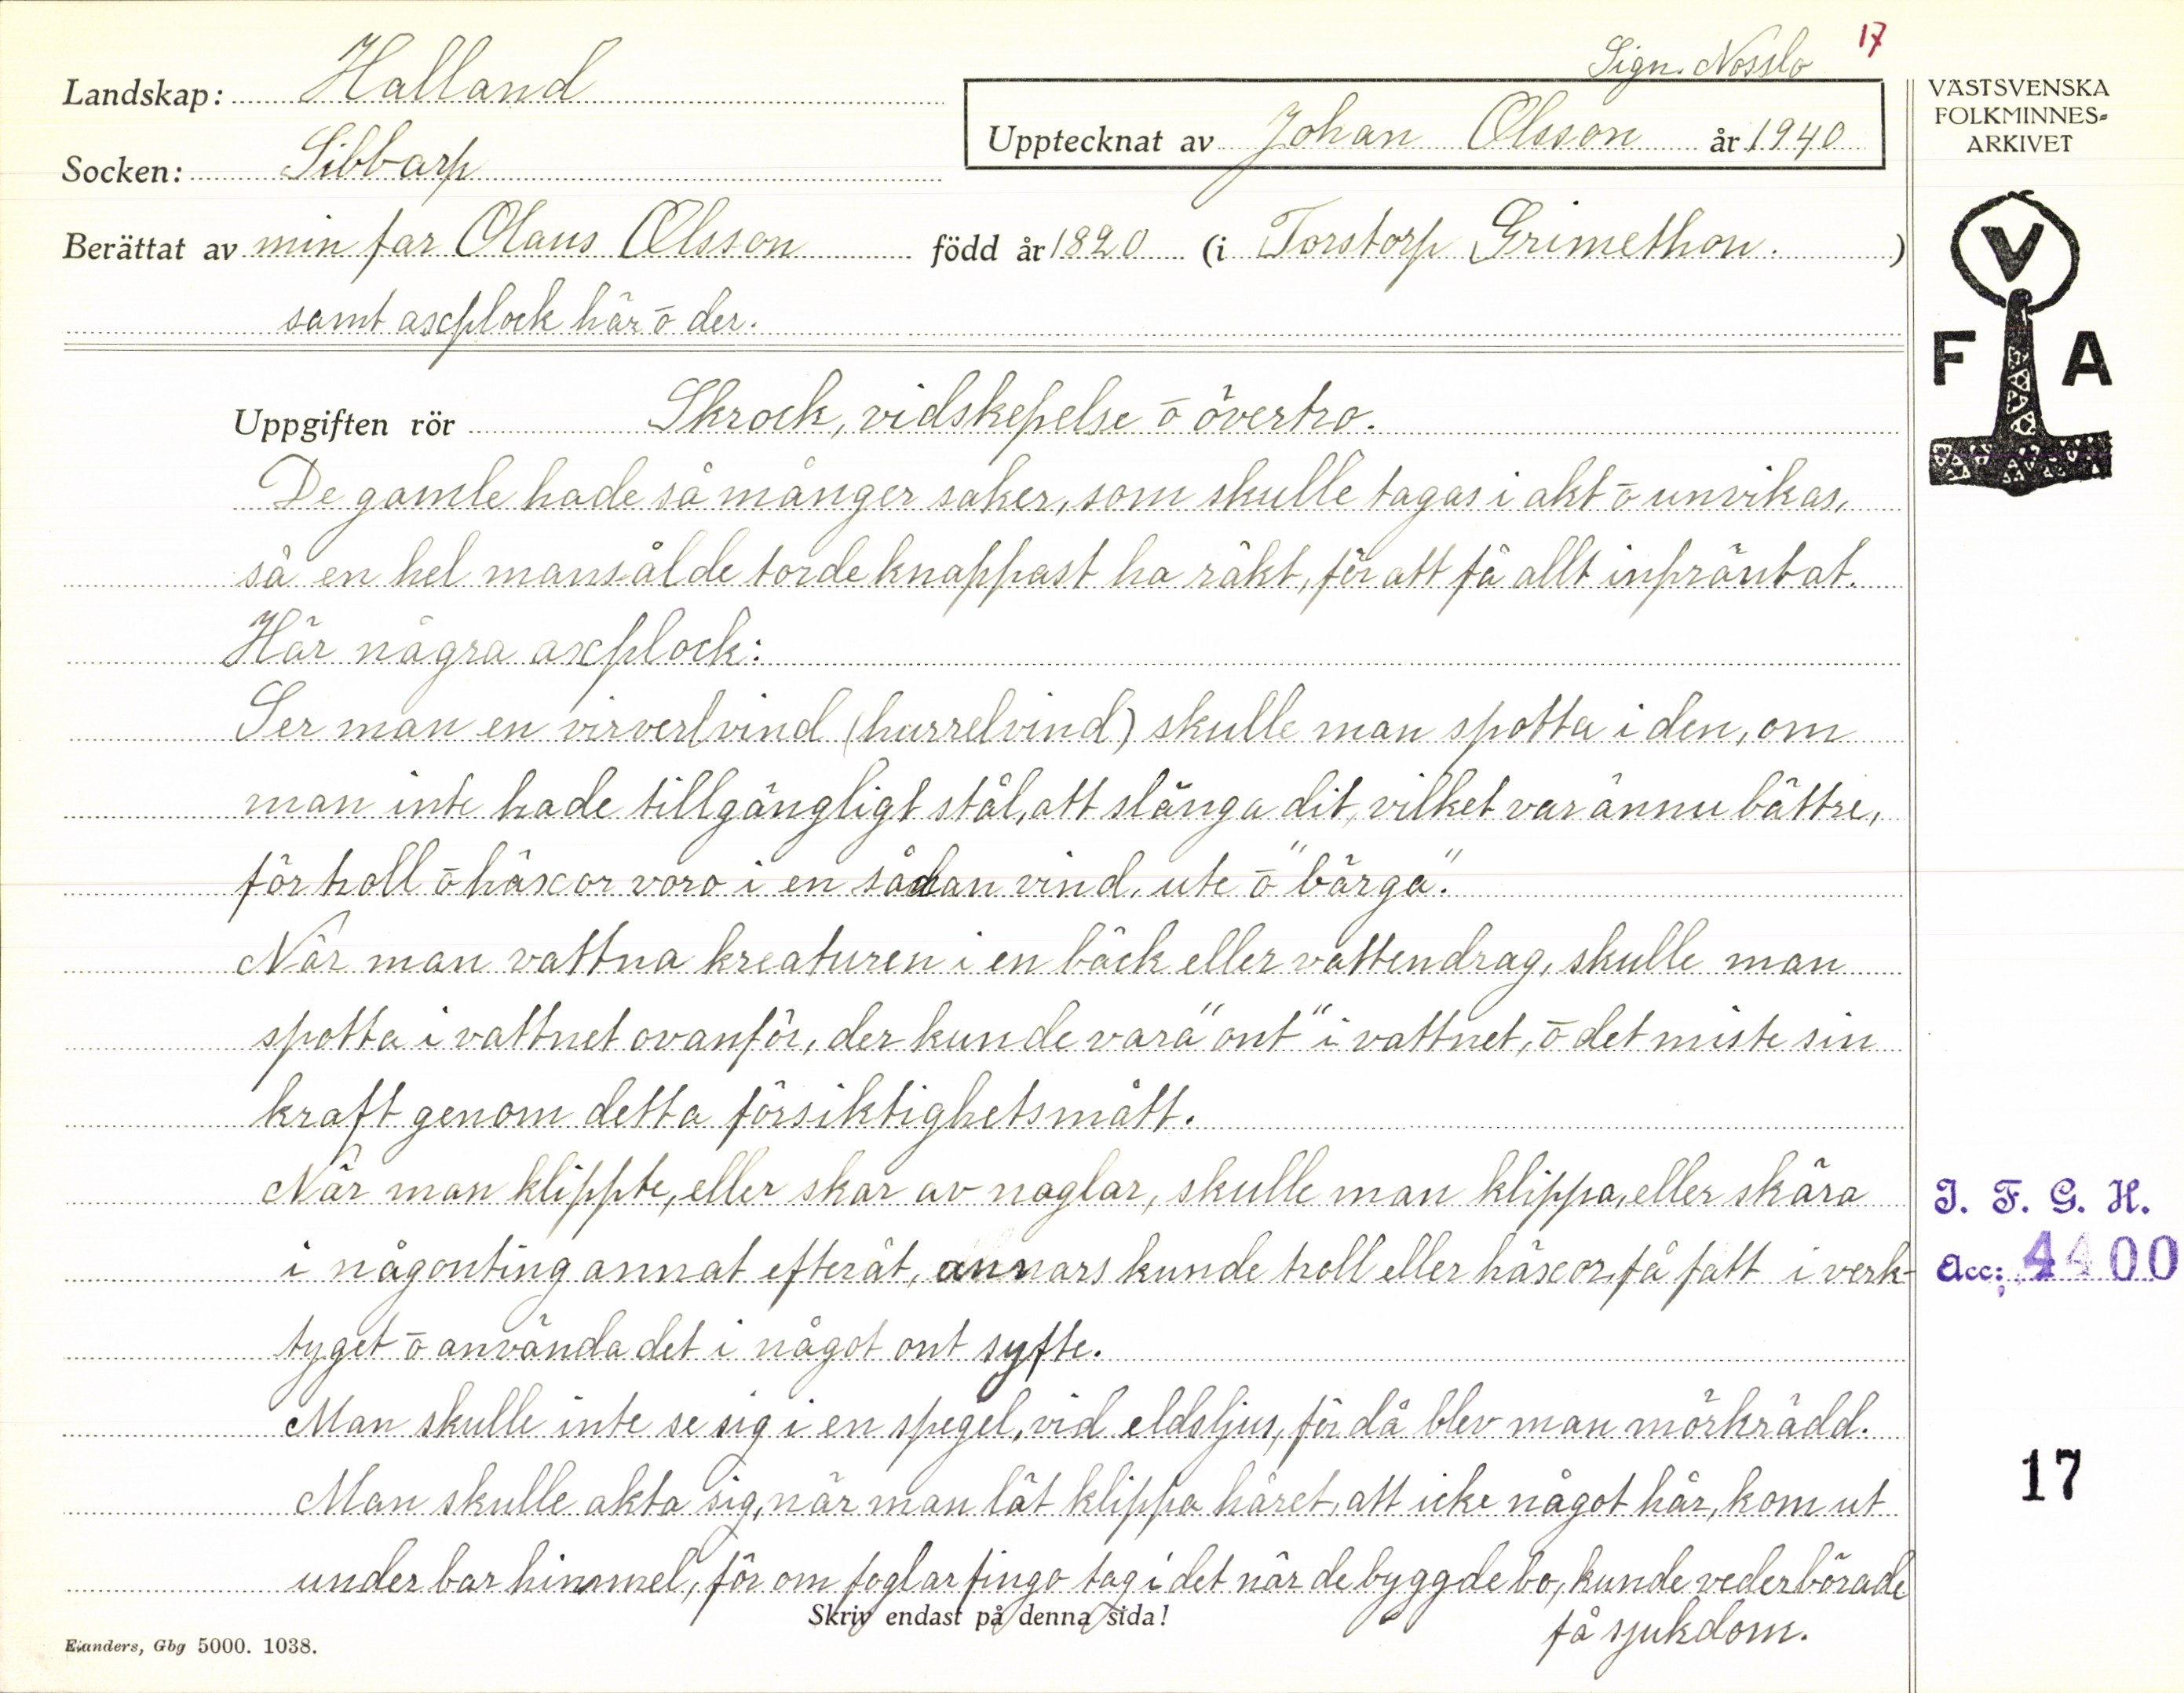 17
Sign. Nosslo
Landskap: Halland
Upptecknat av Johan Olsson år 1940
Socken: Sibbarp
Berättat av min far Olaus Olsson född år 1820 (i Torstorp Grimethon. )
samt axplock här ō der.
Uppgiften rör Skrock, vidskepelse ō övertro.
De gamle hade så månger saker, som skulle tagas i akt ō unvikas,
så en hel mansålde torde knappast ha räkt, för att få allt inpräntat.
Här några axplock:
Ser man en virverlvind (hurrelvind) skulle man spotta i den, om
man inte hade tillgängligt stål, att slänga dit, vilket var ännu bättre,
för troll ō häxor voro i en sådan vind, ute ō "bärga".
När man vattna kreaturen i en bäck eller vattendrag, skulle man
spotta i vattnet ovanför, der kunde vara "ont" i vattnet, ō det miste sin
kraft genom detta försiktighetsmått.
När man klippte, eller skar av naglar, skulle man klippa, eller skära
i någonting annat efteråt, annars kunde troll eller häxor, få fatt i verk-
tyget ō använda det i något ont syfte.
Man skulle inte se sig i en spegel, vid eldsljus, för då blev man mörkrädd.
Man skulle akta sig, när man lät klippa håret, att icke något hår, kom ut
under bar himmel, för om foglar fingo tag i det när de byggde bo, kunde vederbörade
få sjukdom.
Skriv endast på denna sida!
Elanders, Gbg 5000. 1038.
VÄSTSVENSKA
FOLKMINNES-
ARKIVET
V
F A
I. F. G. H.
Acc: 4400
17